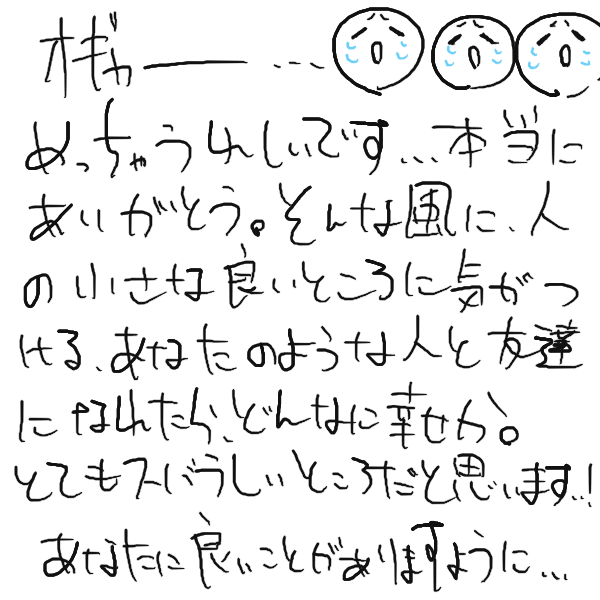 オギャー……
めっちゃうれしいです…本当に
ありがとう。そんな風に、人
の小さな良いところに気がつ
ける、あなたのような人と友達
になれたら、どんなに幸せか。
とてもスバらしいところだと思います!
あなたに良いことがありますように…